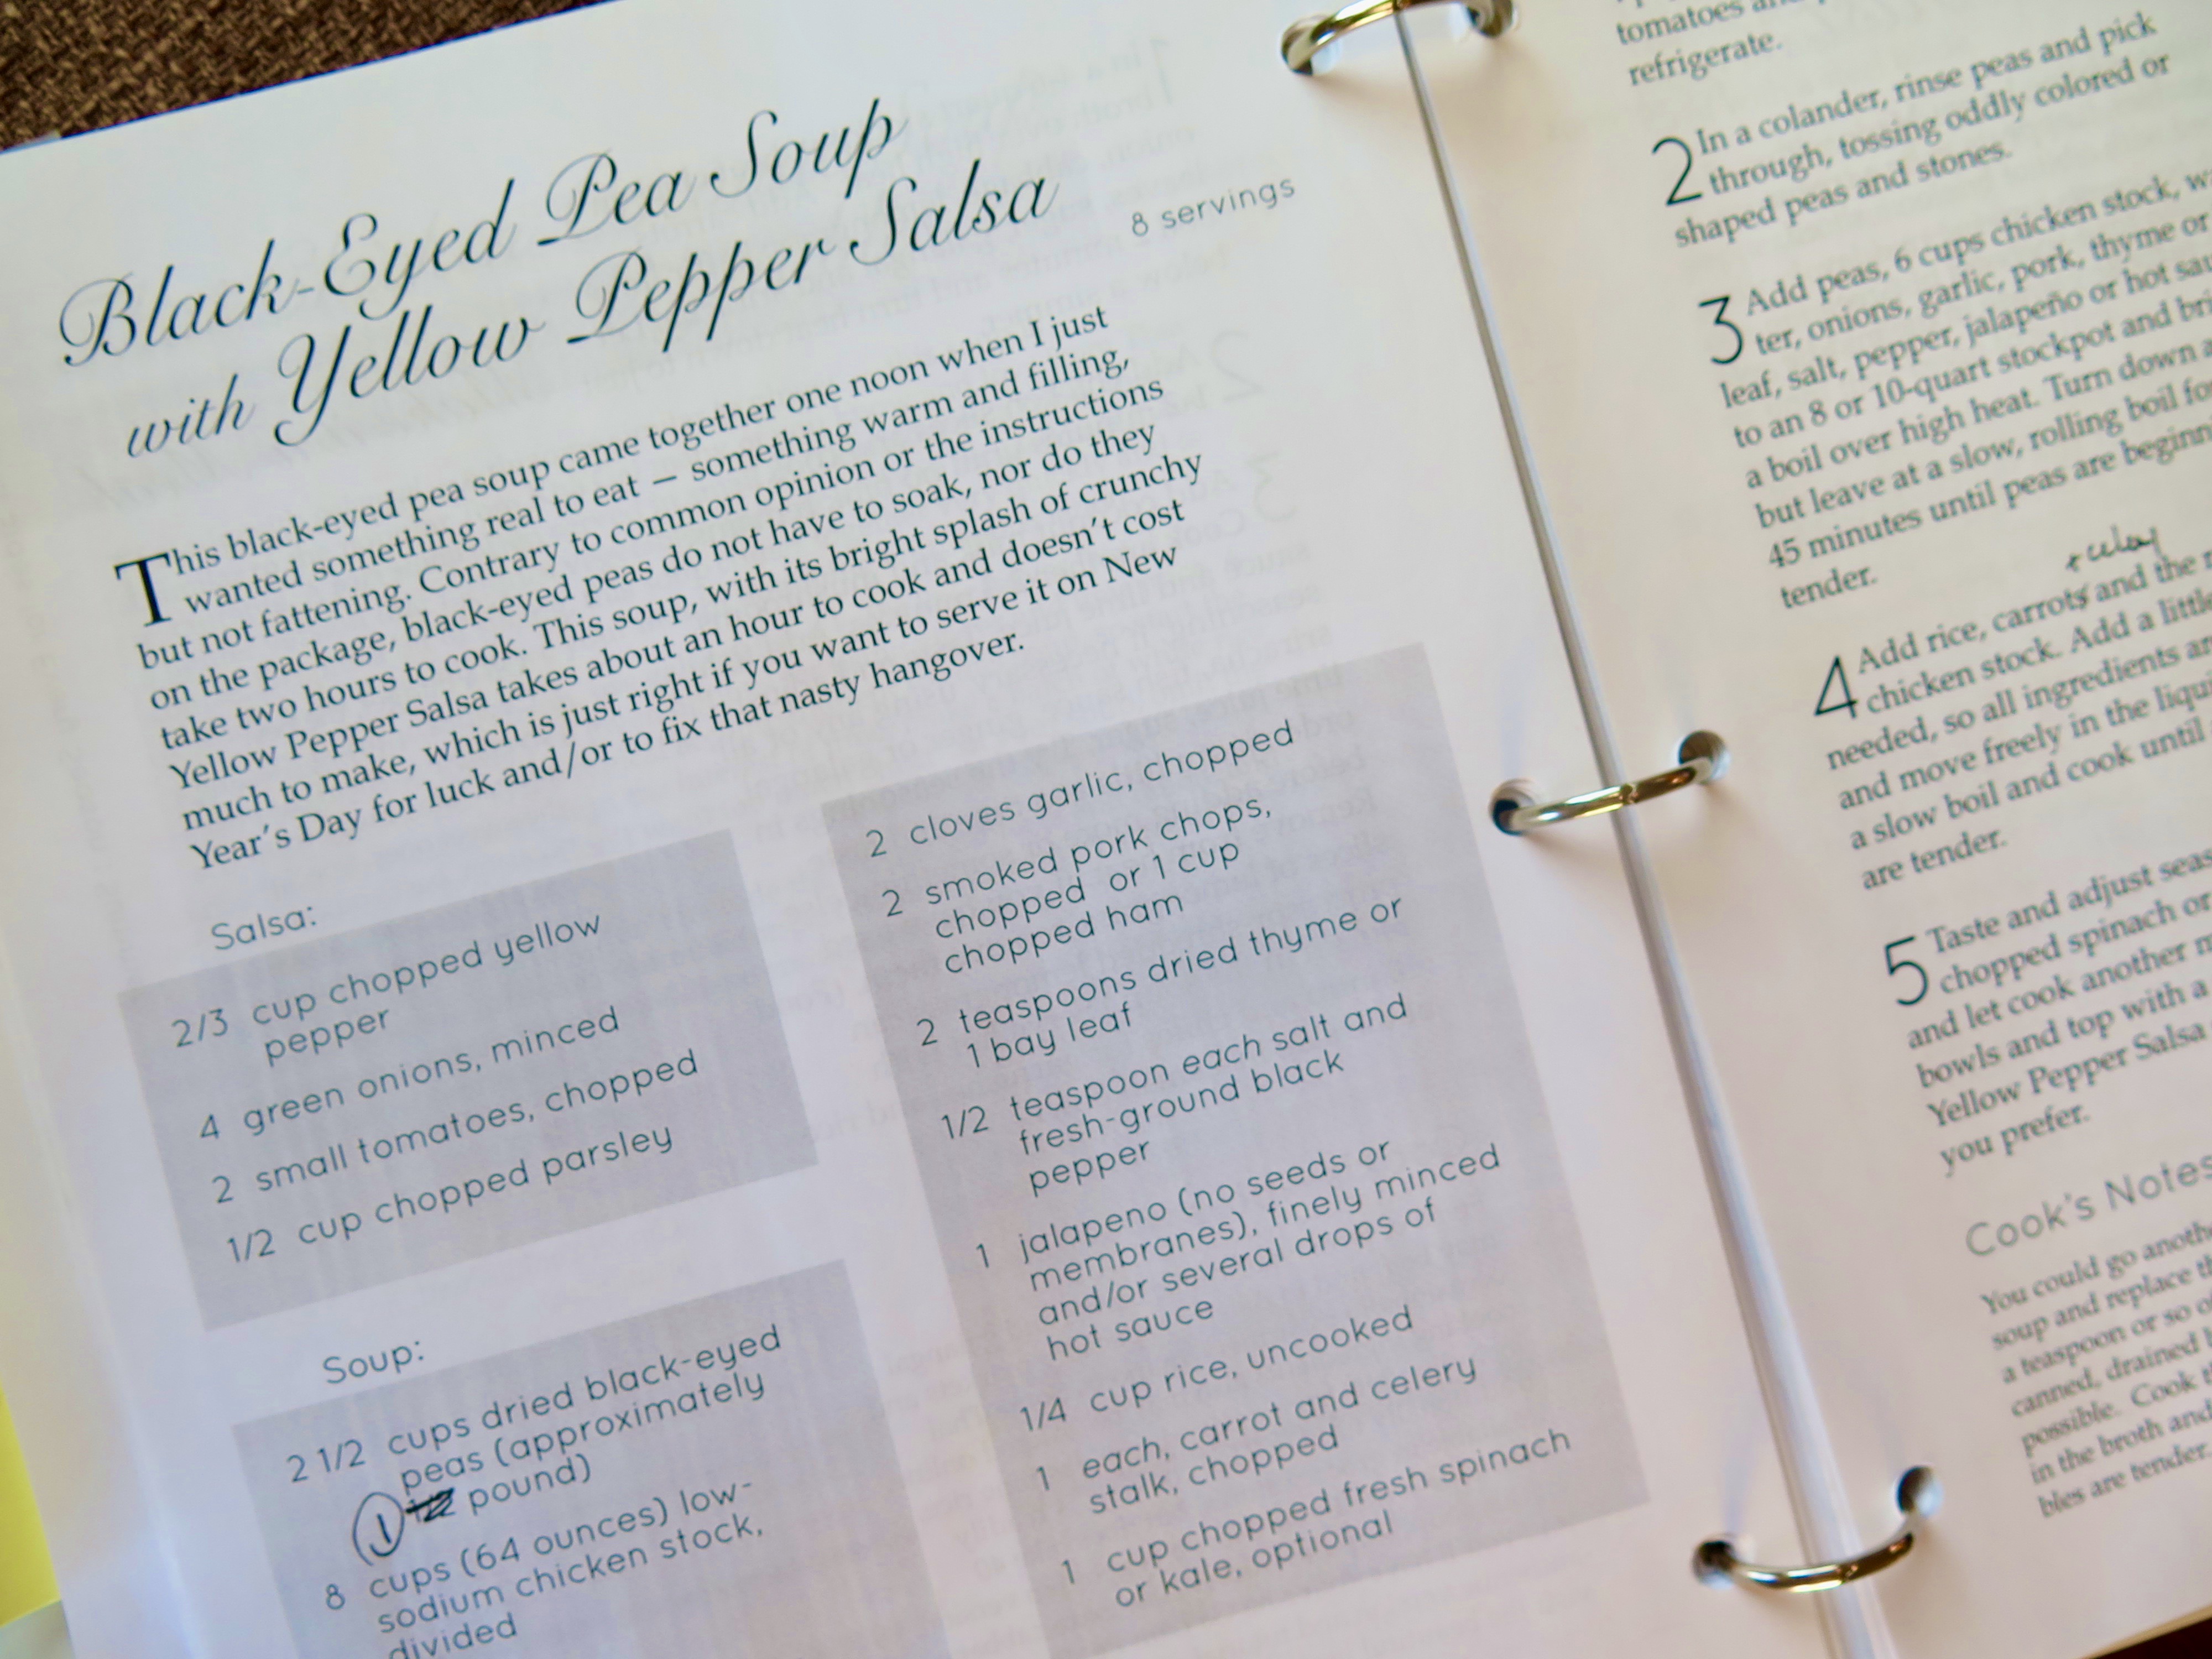 Black-Eyed Pea Soup
with Yellow Pepper Salsa
8 servings
This black-eyed pea soup came together one noon when I just
wanted something real to eat — something warm and filling,
but not fattening. Contrary to common opinion or the instructions
on the package, black-eyed peas do not have to soak, nor do they
take two hours to cook. This soup, with its bright splash of crunchy
Yellow Pepper Salsa takes about an hour to cook and doesn't cost
much to make, which is just right if you want to serve it on New
Year's Day for luck and/or to fix that nasty hangover.
Salsa:
2/3 cup chopped yellow
pepper
4 green onions, minced
2 small tomatoes, chopped
1/2 cup chopped parsley
Soup:
2 1/2 cups dried black-eyed
peas (approximately
1 1/2 pound)
8 cups (64 ounces) low-
sodium chicken stock,
divided
2 cloves garlic, chopped
2 smoked pork chops,
chopped or 1 cup
chopped ham
2 teaspoons dried thyme or
1 bay leaf
1/2 teaspoon each salt and
fresh-ground black
pepper
1 jalapeno (no seeds or
membranes), finely minced
and/or several drops of
hot sauce
1/4 cup rice, uncooked
1 each, carrot and celery
stalk, chopped
1 cup chopped fresh spinach
or kale, optional
tomatoes
refrigerate.
2 In a colander, rinse peas and pick
through, tossing oddly colored or
shaped peas and stones.
3 Add peas, 6 cups chicken stock,
ter, onions, garlic, pork, thyme or
leaf, salt, pepper, jalapeño or hot
to an 8 or 10-quart stockpot and
a boil over high heat. Turn down
but leave at a slow, rolling boil
45 minutes until peas are
tender.
+ celery
4 Add rice, carrots and the
chicken stock. Add a little
needed, so all ingredients
and move freely in the
a slow boil and cook until
are tender.
5 Taste and adjust
chopped spinach or
and let cook another
bowls and top with a
Yellow Pepper Salsa
you prefer.
Cook's Notes
You could go
soup and replace
a teaspoon or so
canned, drained
possible. Cook
in the broth and
bles are tender.